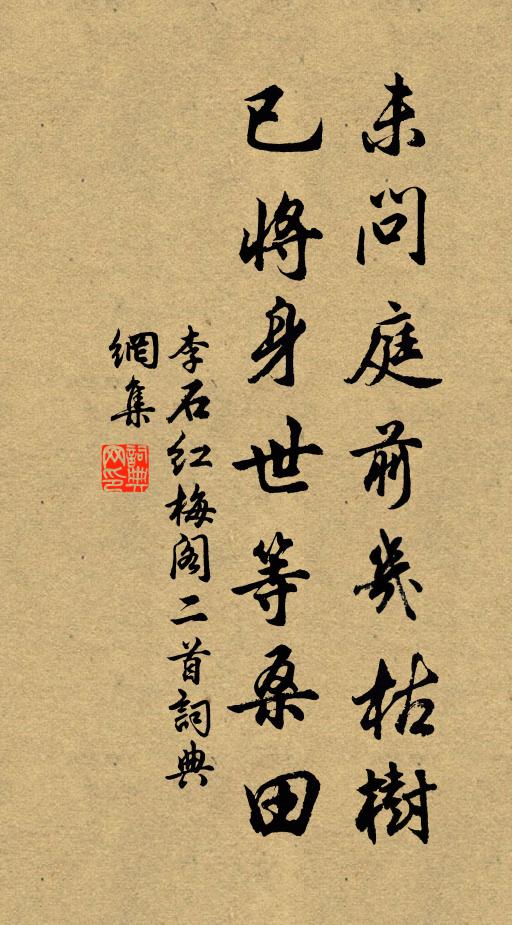 未問庭前幾枯樹
已將身世等桑田
李石红梅阁二首詞典
網集
詞典
网印